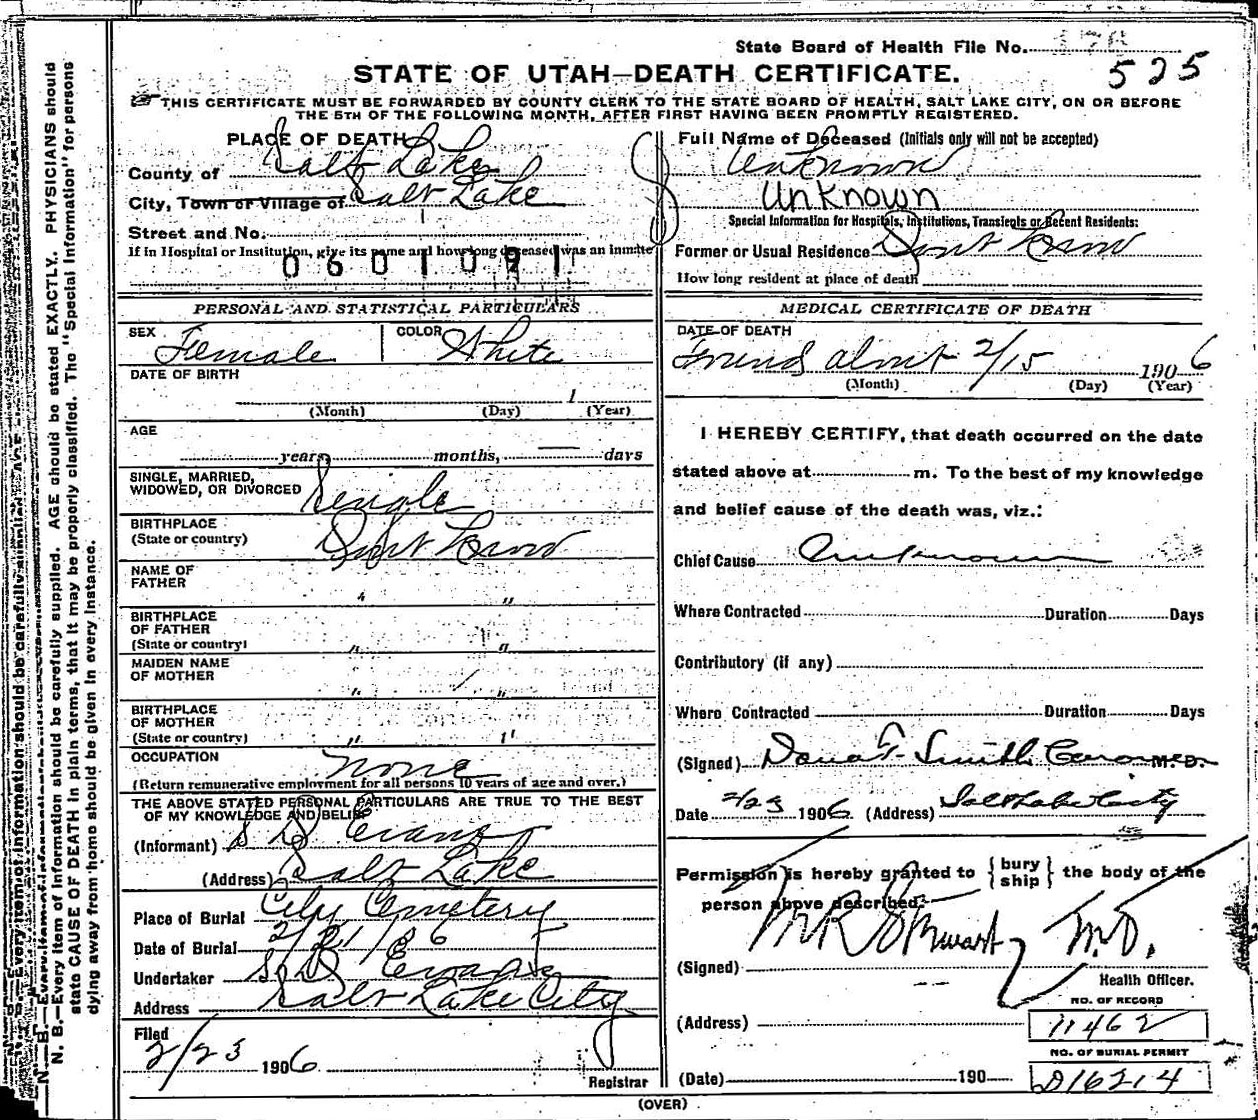 State Board of Health File No. 176
525
STATE OF UTAH—DEATH CERTIFICATE.
THIS CERTIFICATE MUST BE FORWARDED BY COUNTY CLERK TO THE STATE BOARD OF HEALTH, SALT LAKE CITY, ON OR BEFORE
THE 5TH OF THE FOLLOWING MONTH, AFTER FIRST HAVING BEEN PROMPTLY REGISTERED.
PLACE OF DEATH
County of Salt Lake
City, Town or Village of Salt Lake
Street and No.
If in Hospital or Institution, give its name and how long deceased was an inmate
0601091
PERSONAL AND STATISTICAL PARTICULARS
SEX Female COLOR White
DATE OF BIRTH
1
(Month) (Day) (Year)
AGE
years, months, — days
SINGLE, MARRIED,
WIDOWED, OR DIVORCED Single
BIRTHPLACE
(State or country) Dont Know
NAME OF
FATHER " "
BIRTHPLACE
OF FATHER
(State or country) " "
MAIDEN NAME
OF MOTHER " "
BIRTHPLACE
OF MOTHER
(State or country) " "
OCCUPATION none
(Return remunerative employment for all persons 10 years of age and over.)
THE ABOVE STATED PERSONAL PARTICULARS ARE TRUE TO THE BEST
OF MY KNOWLEDGE AND BELIEF
(Informant) S D Evans
(Address) Salt Lake
Place of Burial City Cemetery
Date of Burial 2/21/06
Undertaker S. D. Evans
Address Salt Lake City
Filed
2/23 1906
Registrar
Full Name of Deceased (Initials only will not be accepted)
Unknown
Unknown
Special Information for Hospitals, Institutions, Transients or Recent Residents:
Former or Usual Residence Dont Know
How long resident at place of death
MEDICAL CERTIFICATE OF DEATH
DATE OF DEATH
Found about 2/15 1906
(Month) (Day) (Year)
I HEREBY CERTIFY, that death occurred on the date
stated above at m. To the best of my knowledge
and belief cause of the death was, viz.:
Chief Cause Unknown
Where Contracted Duration Days
Contributory (if any)
Where Contracted Duration Days
(Signed) Dana T. Smith M. D.
Date 2/23 1906 (Address) Salt Lake City
Permission is hereby granted to {bury ship} the body of the
person above described.
(Signed) M R Stewart M.D.
Health Officer.
(Address)
NO. OF RECORD
11462
NO. OF BURIAL PERMIT
(Date) 190
D16214
(OVER)
N. B.—Every item of information should be carefully supplied. AGE should be stated EXACTLY. PHYSICIANS should
state CAUSE OF DEATH in plain terms, that it may be properly classified. The "Special Information" for persons
dying away from home should be given in every instance.